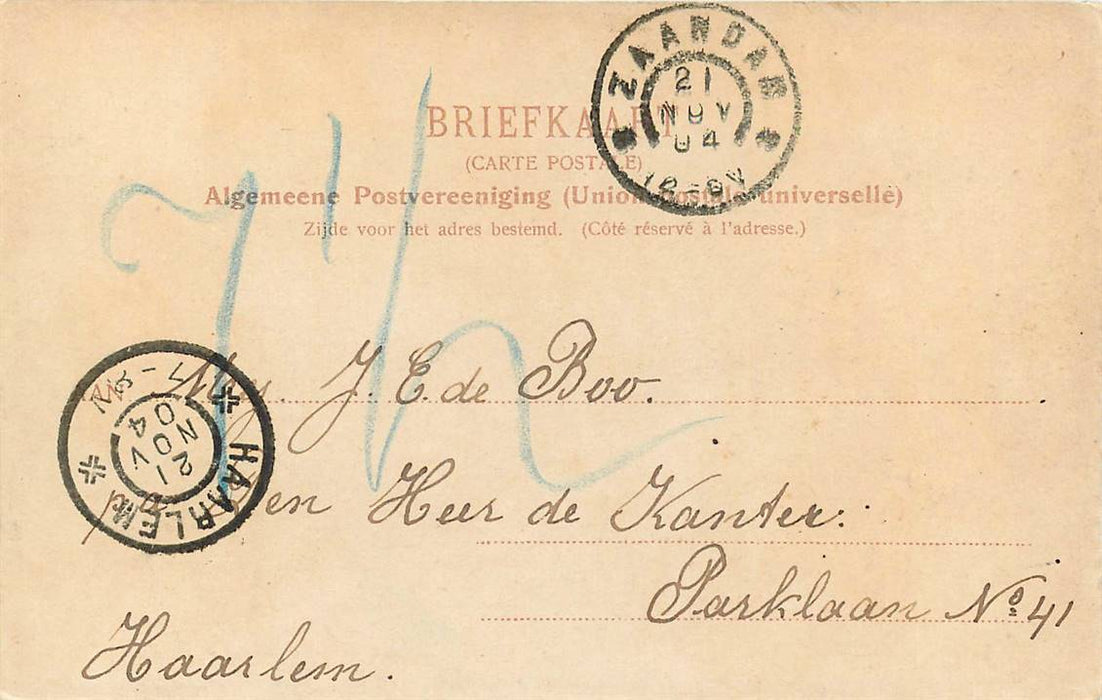 BRIEFKAART
(CARTE POSTALE)
Algemeene Postvereeniging (Union postale universelle)
Zijde voor het adres bestemd. (Côté réservé à l'adresse.)
ZAANDAM
21
NOV
04
12-6V
7½
HAARLEM
21
NOV
04
J. E. de Boo.
den Heer de Kanter:
Parklaan No. 41
Haarlem.